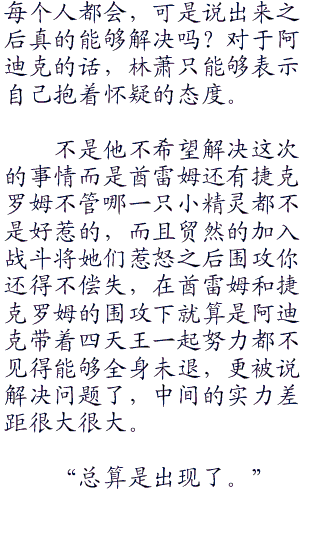 每个人都会，可是说出来之
后真的能够解决吗？对于阿
迪克的话，林萧只能够表示
自己抱着怀疑的态度。
不是他不希望解决这次
的事情而是酋雷姆还有捷克
罗姆不管哪一只小精灵都不
是好惹的，而且贸然的加入
战斗将她们惹怒之后围攻你
还得不偿失，在酋雷姆和捷
克罗姆的围攻下就算是阿迪
克带着四天王一起努力都不
见得能够全身未退，更被说
解决问题了，中间的实力差
距很大很大。
“总算是出现了。”